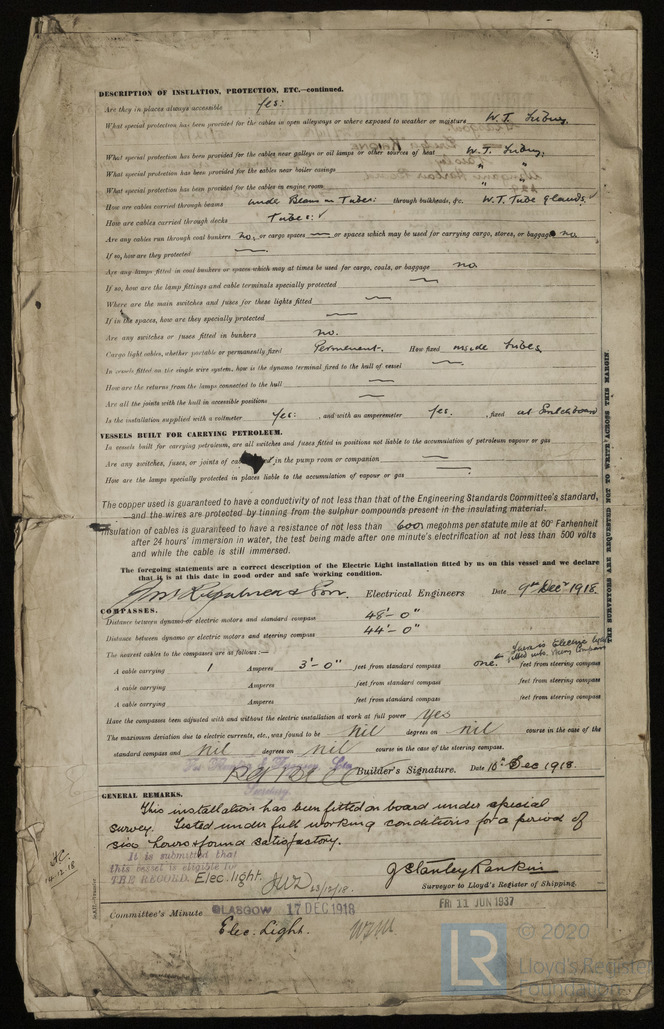 DESCRIPTION OF INSULATION, PROTECTION, ETC.—continued.
Are they in places always accessible Yes:
What special protection has been provided for the cables in open alleyways or where exposed to weather or moisture W.T. Tubing,
What special protection has been provided for the cables near galleys or oil lamps or other sources of heat W.T. Tubing;
What special protection has been provided for the cables near boiler casings " "
What special protection has been provided for the cables in engine room " "
How are cables carried through beams under Beams in Tubes: through bulkheads, &c. W.T. Tube glands.
How are cables carried through decks Tubes: ✓
Are any cables run through coal bunkers no, or cargo spaces — or spaces which may be used for carrying cargo, stores, or baggage no
If so, how are they protected —
Are any lamps fitted in coal bunkers or spaces which may at times be used for cargo, coals, or baggage no
If so, how are the lamp fittings and cable terminals specially protected —
Where are the main switches and fuses for these lights fitted —
If in the spaces, how are they specially protected —
Are any switches or fuses fitted in bunkers no.
Cargo light cables, whether portable or permanently fixed Permanent. How fixed inside Tubes
In vessels fitted on the single wire system, how is the dynamo terminal fixed to the hull of vessel —
How are the returns from the lamps connected to the hull —
Are all the joints with the hull in accessible positions —
Is the installation supplied with a voltmeter Yes: , and with an amperemeter Yes. , fixed at Switchboard
VESSELS BUILT FOR CARRYING PETROLEUM.
In vessels built for carrying petroleum, are all switches and fuses fitted in positions not liable to the accumulation of petroleum vapour or gas —
Are any switches, fuses, or joints of in the pump room or companion —
How are the lamps specially protected in places liable to the accumulation of vapour or gas —
The copper used is guaranteed to have a conductivity of not less than that of the Engineering Standards Committee's standard,
and the wires are protected by tinning from the sulphur compounds present in the insulating material.
Insulation of cables is guaranteed to have a resistance of not less than 600 megohms per statute mile at 60° Farhenheit
after 24 hours' immersion in water, the test being made after one minute's electrification at not less than 500 volts
and while the cable is still immersed.
The foregoing statements are a correct description of the Electric Light installation fitted by us on this vessel and we declare
that it is at this date in good order and safe working condition.
& Son. Electrical Engineers Date 9th Decr 1918.
COMPASSES.
Distance between dynamo or electric motors and standard compass 48'- 0"
Distance between dynamo or electric motors and steering compass 44'- 0"
The nearest cables to the compasses are as follows:—
There is Electric light fitted into Steering Compass
A cable carrying 1 Amperes 3'- 0" feet from standard compass one. feet from steering compass
A cable carrying Amperes feet from standard compass feet from steering compass
A cable carrying Amperes feet from standard compass feet from steering compass
Have the compasses been adjusted with and without the electric installation at work at full power Yes
The maximum deviation due to electric currents, etc., was found to be nil degrees on nil course in the case of the
standard compass and nil degrees on nil course in the case of the steering compass.
Builder's Signature. Date 10th Dec 1918.
GENERAL REMARKS.
This installation has been fitted on board under special
survey. Tested under full working conditions for a period of
six hours & found satisfactory.
It is submitted that
this vessel is eligible for
THE RECORD. Elec. light. 23/12/18.
14.12.18
J Stanley Rankin
Surveyor to Lloyd's Register of Shipping.
Committee's Minute GLASGOW 17 DEC 1918
FRI 11 JUN 1937
Elec. Light.
THE SURVEYORS ARE REQUESTED NOT TO WRITE ACROSS THIS MARGIN
LR
© 2020
Lloyd's Register
Foundation